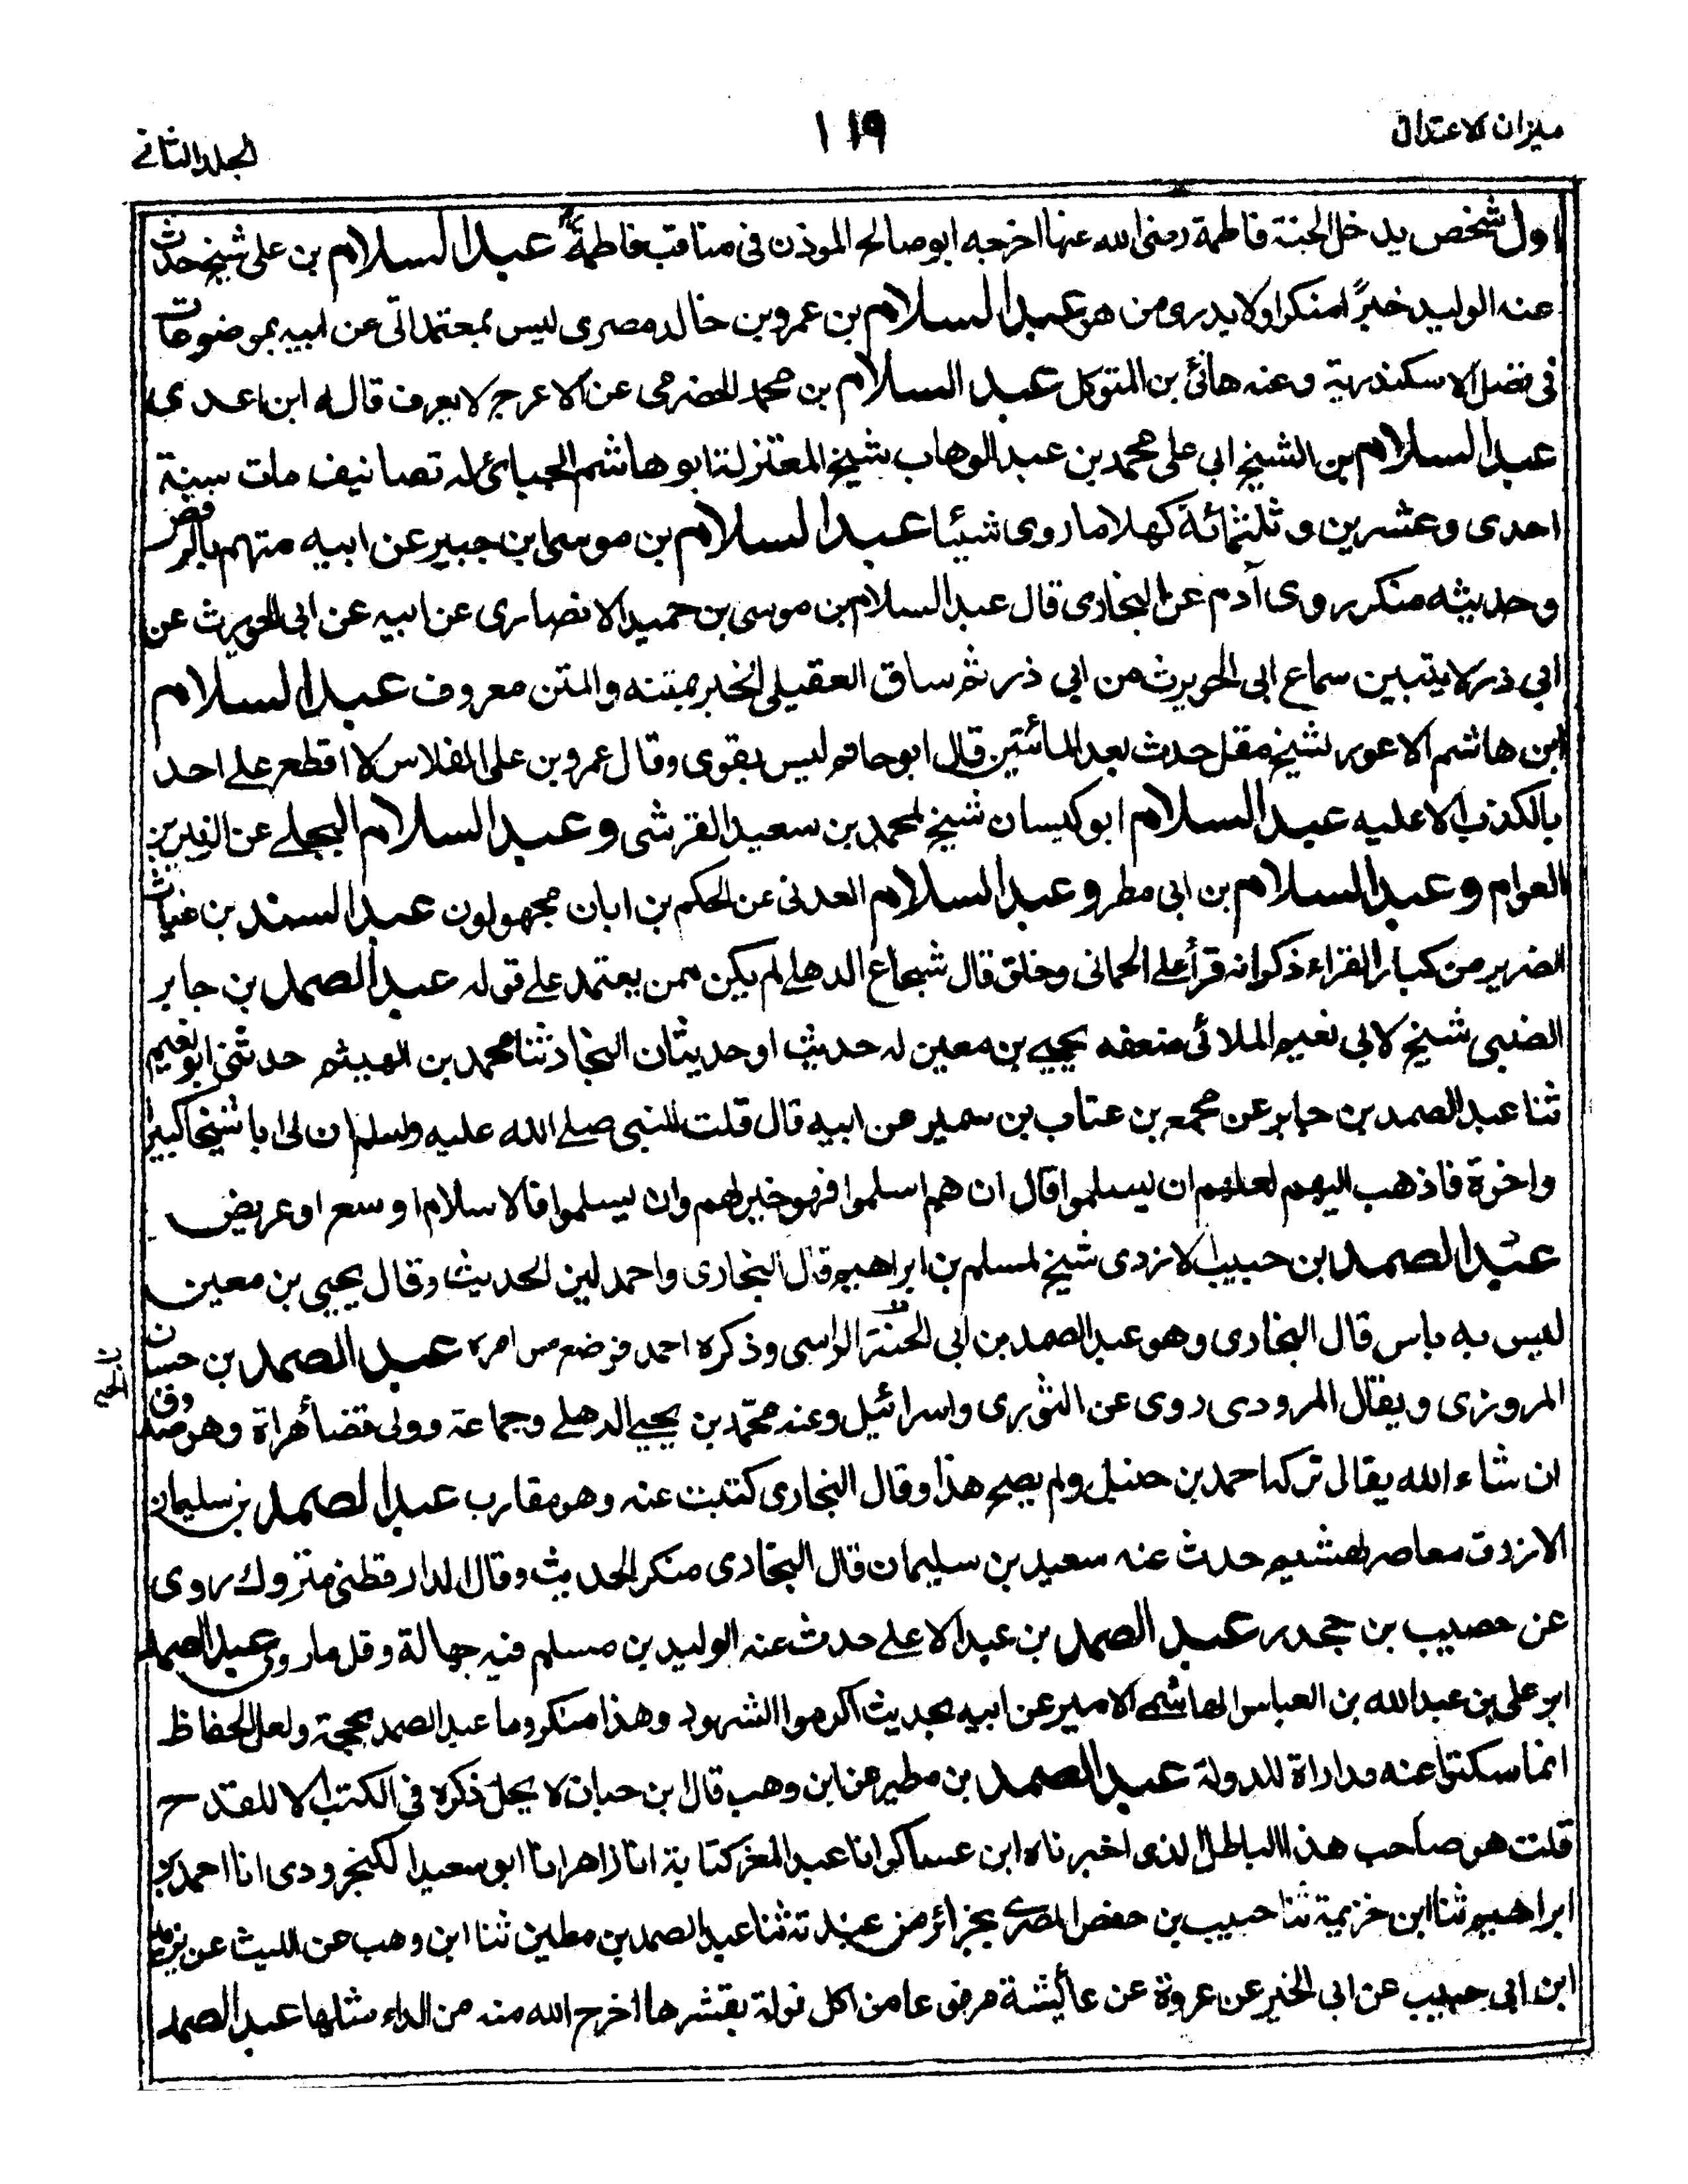 ميزان الاعتدال
١١٩
المجلد الثاني
اول شخص يدخل الجنة فاطمة رضى الله عنها اخرجه ابو صالح الموذن فى مناقب فاطمة عبد السلام بن على شيخ حدث
عنه الوليد خبرًا منكرا ولا يدرى من هو عبد السلام بن عمرو بن خالد مصرى ليس بمعتمد اتى عن ابيه بموضوعات
فى فضل الاسكندرية وعنه هانئ بن المتوكل عبد السلام بن محمد الحضرمى عن الاعرج لا يعرف قاله ابن عدى
عبد السلام بن الشيخ ابى على محمد بن عبد الوهاب شيخ المعتزلة ابو هاشم الجبائى له تصانيف مات سنة
احدى وعشرين وثلثمائة كهلا ما روى شيئا عبد السلام بن موسى ابن جبير عن ابيه متهم بالرفض
وحديثه منكر روى آدم عن البخارى قال عبد السلام بن موسى بن حميد الانصارى عن ابيه عن ابى الحويرث عن
ابى ذر لا يتبين سماع ابى الحويرث من ابى ذر ثم ساق العقيلى الخبر بمتنه والمتن معروف عبد السلام
ابن هاشم الاعور شيخ مقل حدث بعد المائتين قال ابو حاتم ليس بقوى وقال عمرو بن على الفلاس لا اقطع على احد
بالكذب الا عليه عبد السلام ابو كيسان شيخ لمحمد بن سعيد القرشى وعبد السلام البجلے عن الزبير بن
العوام وعبد السلام بن ابى مطر وعبد السلام العدنى عن الحكم بن ابان مجهولون عبد السند بن غياث
الضرير من كبار القراء ذكر انه قرأ على الحمانى وخلق قال شجاع الدهلے لم يكن ممن يعتمد على قوله عبد الصمد بن جابر
الضبى شيخ لابى نعيم الملائى ضعفه يحيى بن معين له حديث او حديثان البخا ثنا محمد بن الهيثم حدثنى ابو نعيم
ثنا عبد الصمد بن جابر عن مجمع بن عتاب بن سمير عن ابيه قال قلت للنبى صلے الله عليه وسلم ان لى ابا شيخا كبيرا
واخرة فاذهب اليهم لعلهم ان يسلموا قال ان هم اسلموا فهو خير لهم وان يسلموا فالاسلام اوسع او عريض
عبد الصمد بن حبيب الازدى شيخ لمسلم بن ابراهيم قال البخارى واحمد لين الحديث وقال يحيى بن معين
ليس به باس قال البخارى وهو عبد الصمد بن ابى الجنة الراسى وذكره احمد فوضع من امره عبد الصمد بن حسان
المروزى ويقال المرودى روى عن الثورى واسرائيل وعنه محمّد بن يحيى الدهلے وجماعة وولى قضأ هراة وهو صدوق
ان شاء الله يقال تركه احمد بن حنبل ولم يصح هذا وقال البخارى كتبت عنه وهو مقارب عبد الصمد بن سليمان
الازرق معاصر لهشيم حدث عنه سعيد بن سليمان قال البخارى منكر الحديث وقال الدارقطنى متروك روى
عن حصيب بن جحدر عبد الصمد بن عبد الاعلے حدث عنه الوليد بن مسلم فيه جهالة وقل ما روى عبد الصمد
ابن على بن عبد الله بن العباس الهاشمى الامير عن ابيه بحديث اكرموا الشهود وهذا منكر وما عبد الصمد بحجة ولعل الحفاظ
انما سكتوا عنه مداراة للدولة عبد الصمد بن مطير عن ابن وهب قال ابن حبان لا يحل ذكره فى الكتب الا للقدح
قلت هو صاحب هذا الباطل الذى اخبرناه ابن عساكر انا عبد المعز كتابة انا زاهر انا ابو سعيد الكنجرودى انا احمد بن
ابراهيم ثنا ابن خزيمة ثنا حبيب بن حفص المصرى بجزائر من ثنا عبد الصمد بن مطير ثنا ابن وهب عن الليث عن يزيد
ابن ابى حبيب عن ابى الخير عن عروة عن عائشة مرفوعا من اكل فولة بقشرها اخرج الله منه من الداء مثلها عبد الصمد